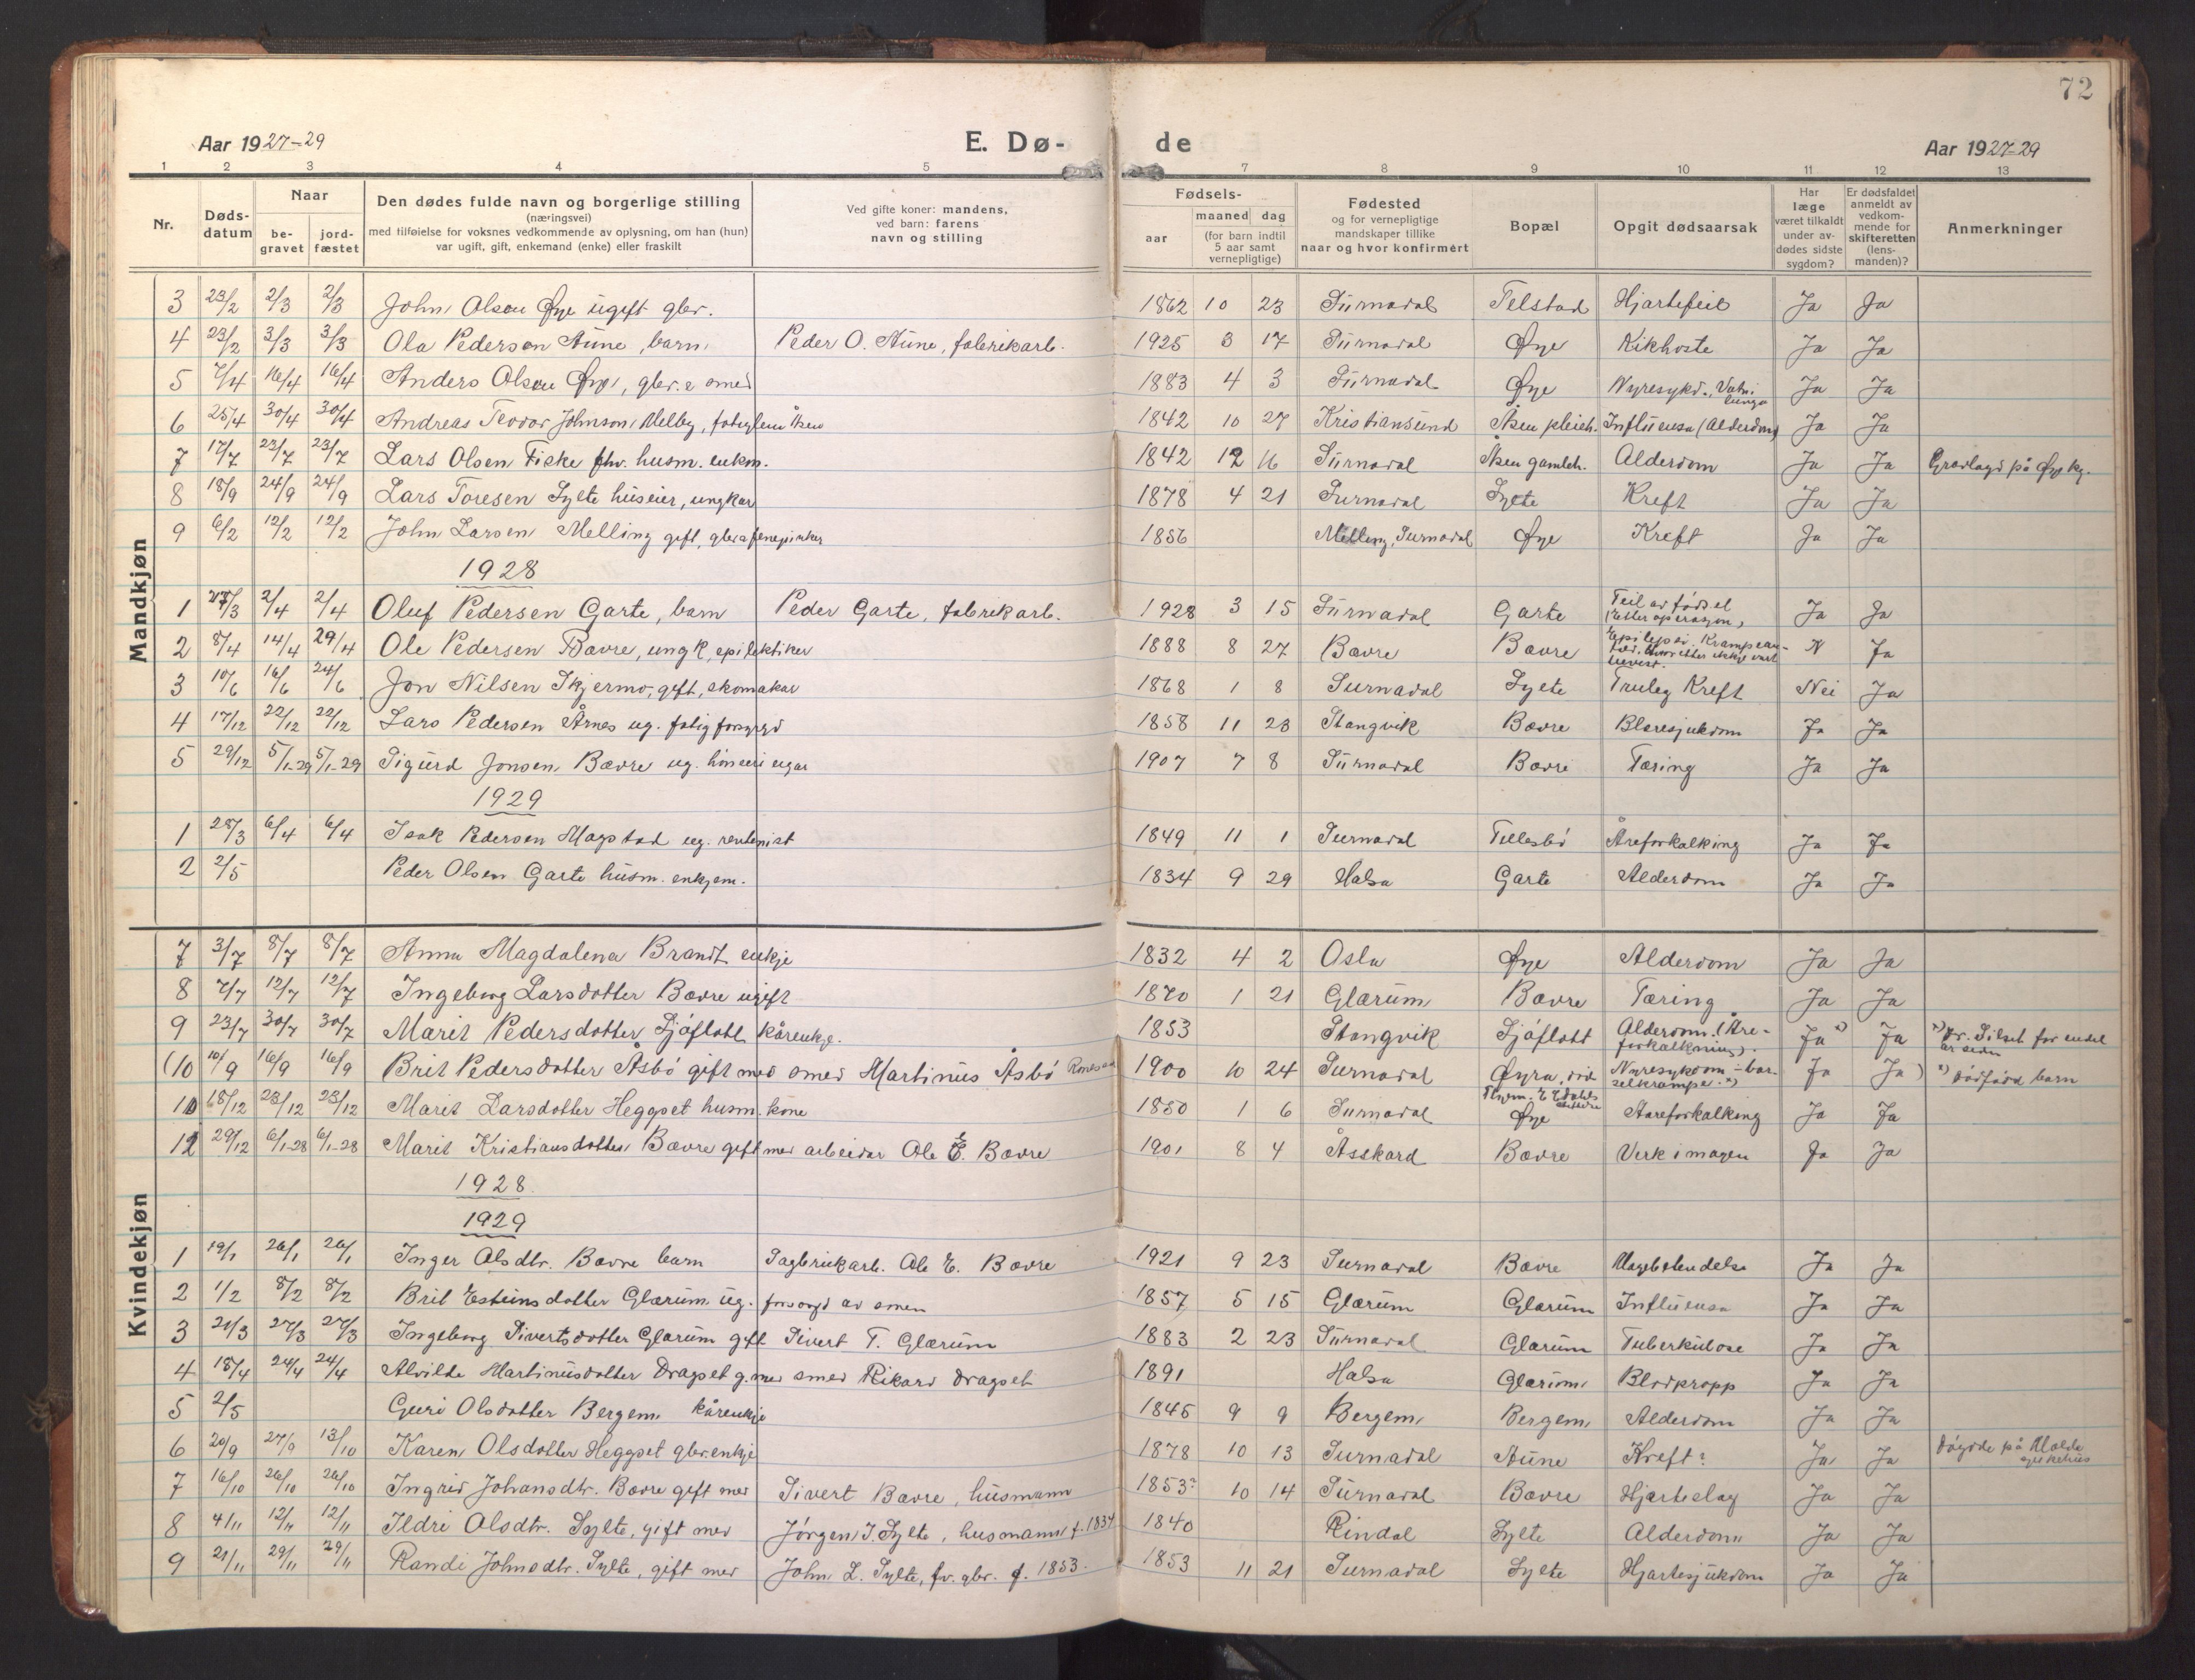 72
Aar 1927-29 E. Dø- de Aar 1927-29
1 2 3 4 5 7 8 9 10 11 12 13
Nr. Døds-datum Naar be-gravet jord-fæstet Den dødes fulde navn og borgerlige stilling (næringsvei) med tilføielse for voksnes vedkommende av oplysning, om han (hun) var ugift, gift, enkemand (enke) eller fraskilt Ved gifte koner: mandens, ved barn: farens navn og stilling Fødsels- aar maaned dag (for barn indtil 5 aar samt vernepligtige) Fødested og for vernepligtige mandskaper tillike naar og hvor konfirmert Bopæl Opgit dødsaarsak Har læge været tilkaldt under av-dødes sidste sygdom? Er dødsfaldet anmeldt av vedkom-mende for skifteretten (lens-manden)? Anmerkninger
Mandkjøn
3 23/2 2/3 2/3 John Olsen Øye ugift gbr. 1862 10 23 Surnadal Telstad Hjartefeil Ja Ja
4 23/2 3/3 3/3 Ola Pedersen Aune, barn Peder O. Aune, fabrikarb. 1925 3 17 Surnadal Øye Kikhoste Ja Ja
5 7/4 16/4 16/4 Anders Olsen Øye, gbr. & smed 1883 4 3 Surnadal Øye Nyresykd., Vatn i lunga Ja Ja
6 25/4 30/4 30/4 Andreas Teodor Johnson Melby, Åsen 1842 10 27 Kristiansund Åsen pleieh. Influensa (Alderdom) Ja Ja
7 17/7 23/7 23/7 Lars Olsen Fiske fhv. husm. enkm. 1842 12 16 Surnadal Åsen gamleh. Alderdom Ja Ja Gravlagd på Øye kg.
8 18/9 24/9 24/9 Lars Toresen Sylte huseier, ungkar 1878 4 21 Surnadal Sylte Kreft Ja Ja
9 6/2 12/2 12/2 John Larsen Melling gift, 1856 Melling, Surnadal Øye Kreft Ja Ja
1928
1 /3 2/4 2/4 Oluf Pedersen Garte, barn Peder Garte, fabrikarb. 1928 3 15 Surnadal Garte Feil av fødsel (etter operasjon) Ja Ja
2 8/4 14/4 29/4 Ole Pedersen Bævre, ungk, epilektiker 1888 8 27 Bævre Bævre Epilepsi, Krampean- N Ja
3 10/6 16/6 24/6 Jon Nilsen Skjermo, gift, skomakar 1868 1 8 Surnadal Sylte Truleg Kreft Nei Ja
4 17/12 22/12 22/12 Lars Pedersen Årnes ug. fatigforsyrgd 1858 11 23 Stangvik Bævre Blæresjukdom Ja Ja
5 29/12 5/1-29 5/1-29 Sigurd Jonsen Bævre ug. 1907 7 8 Surnadal Bævre Tæring Ja Ja
1929
1 28/3 6/4 6/4 Isak Pedersen Mogstad ug. rentenist 1849 11 1 Surnadal Tellesbø Åreforkalking Ja Ja
2 2/5 Peder Olsen Garte husm. enkjem. 1834 9 29 Halsa Garte Alderdom Ja Ja
Kvindekjøn
7 3/7 8/7 8/7 Anna Magdalena Brandt enkje 1832 4 2 Oslo Øye Alderdom Ja Ja
8 7/7 12/7 12/7 Ingeborg Larsdotter Bævre ugift 1870 1 21 Glærum Bævre Tæring Ja Ja
9 23/7 30/7 30/7 Marit Pedersdotter Sjøflott kårenkje. 1853 Stangvik Sjøflott Alderdom. (Åre-forkalkning). Ja x) Ja x) Dr. Silset for endel år sedn
(10 10/9 16/9 16/9 Brit Pedersdotter Åsbø gift med smed Martinus Åsbø 1900 10 24 Surnadal Øyra, Nyresykdom - bar-selkrampe. x) Ja Ja) x) dødfødd barn
11 18/12 23/12 23/12 Marit Larsdotter Heggset husm. kone 1850 1 6 Surnadal Øye Aareforkalking Ja Ja
12 29/12 6/1-28 6/1-28 Marit Kristiansdotter Bævre gift med arbeidar Ole E. Bævre 1901 8 4 Åsskard Bævre Verk i magen Ja Ja
1928
1929
1 19/1 26/1 26/1 Inger Olsdtr. Bævre barn Sagbrukarb. Ole E. Bævre 1921 9 23 Surnadal Bævre Ja Ja
2 1/2 8/2 8/2 Brit Esteinsdotter Glærum ug. forsørgd av 1857 5 15 Glærum Glærum Influensa Ja Ja
3 21/3 27/3 27/3 Ingeborg Sivertsdotter Glærum gift Sivert T. Glærum 1883 2 23 Surnadal Glærum Tuberkulose Ja Ja
4 18/4 24/4 24/4 Alvilde Martinusdotter Dragset g. med smed Rikard Dragset 1891 Halsa Glærum Blodpropp Ja Ja
5 2/5 Guri Olsdotter Bergem kårenkje 1845 9 9 Bergem Bergem Alderdom Ja Ja
6 20/9 27/9 13/10 Karen Olsdotter Heggset gbr.enkje 1878 10 13 Surnadal Aune Kreft? Ja Ja Døydde på Molde sjukehus
7 16/10 26/10 26/10 Ingrid Johansdtr. Bævre gift med Sivert Bævre, husmann 1853? 10 14 Surnadal Bævre Hjarteslag Ja Ja
8 4/11 12/11 12/11 Ildri Olsdtr. Sylte, gift med Jørgen J. Sylte, husmann f. 1834 1840 Rindal Sylte Alderdom Ja Ja
9 21/11 29/11 29/11 Randi Johnsdtr. Sylte, gift med John L. Sylte, fv. gbr. f. 1853. 1853 11 21 Surnadal Sylte Hjartesjukdom Ja Ja